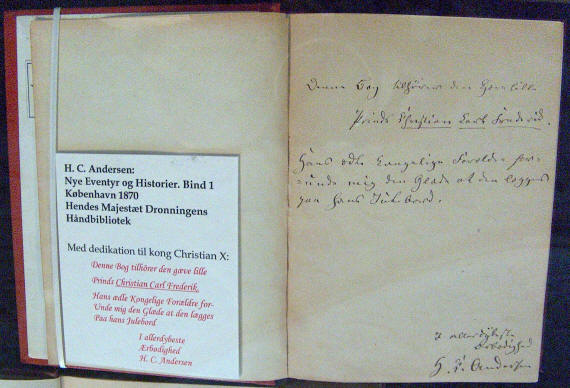 H. C. Andersen:
Nye Eventyr og Historier. Bind 1
København 1870
Hendes Majestæt Dronningens
Håndbibliotek
Med dedikation til kong Christian X:
Denne Bog tilhörer den gæve lille
Prinds Christian Carl Frederik.
Hans ædle Kongelige Forældre for-
Unde mig den Glæde at den lægges
Paa hans Julebord
I allerdybeste
Ærbødighed
H. C. Andersen
Denne Bog tilhörer den gæve lille
Prinds Christian Carl Frederik.
Hans ædle Kongelige Forældre for-
unde mig den Glæde at den lægges
paa hans Julebord.
I allerdybeste
Ærbødighed
H. C. Andersen